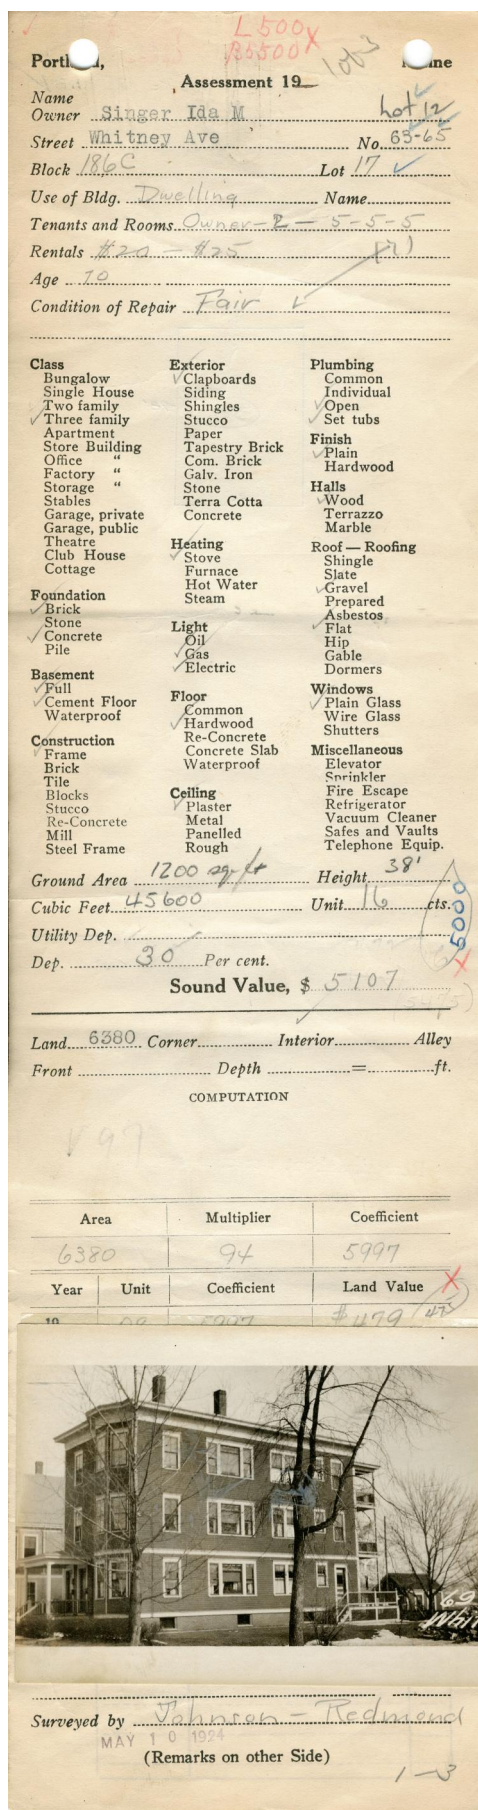 L 500 X
B5500
1 of 3
Portland, Maine
Assessment 19
Name
Owner Singer Ida M Lot 12
Street Whitney Ave No. 63-65
Block 186C Lot 17
Use of Bldg. Dwelling Name
Tenants and Rooms Owner-2-5-5-5
Rentals $20 - $25
Age 10
Condition of Repair Fair
Class
Bungalow
Single House
Two family
Three family
Apartment
Store Building
Office "
Factory "
Storage "
Stables
Garage, private
Garage, public
Theatre
Club House
Cottage
Foundation
Brick
Stone
Concrete
Pile
Basement
Full
Cement Floor
Waterproof
Construction
Frame
Brick
Tile
Blocks
Stucco
Re-Concrete
Mill
Steel Frame
Exterior
Clapboards
Siding
Shingles
Stucco
Paper
Tapestry Brick
Com. Brick
Galv. Iron
Stone
Terra Cotta
Concrete
Heating
Stove
Furnace
Hot Water
Steam
Light
Oil
Gas
Electric
Floor
Common
Hardwood
Re-Concrete
Concrete Slab
Waterproof
Ceiling
Plaster
Metal
Panelled
Rough
Plumbing
Common
Individual
Open
Set tubs
Finish
Plain
Hardwood
Halls
Wood
Terrazzo
Marble
Roof — Roofing
Shingle
Slate
Gravel
Prepared
Asbestos
Flat
Hip
Gable
Dormers
Windows
Plain Glass
Wire Glass
Shutters
Miscellaneous
Elevator
Sprinkler
Fire Escape
Refrigerator
Vacuum Cleaner
Safes and Vaults
Telephone Equip.
Ground Area 1200 sq. ft Height 38'
Cubic Feet 45600 Unit 16 cts.
Utility Dep.
5000 X
Dep. 30 Per cent.
Sound Value, $ 5107
Land 6380 Corner Interior Alley
Front Depth = ft.
COMPUTATION
Area Multiplier Coefficient
6380 94 5997
Year Unit Coefficient Land Value X
19 08 5997 $479 475
69
Whit
Surveyed by Johnson - Redmond
MAY 10 1924
(Remarks on other Side)
1-3